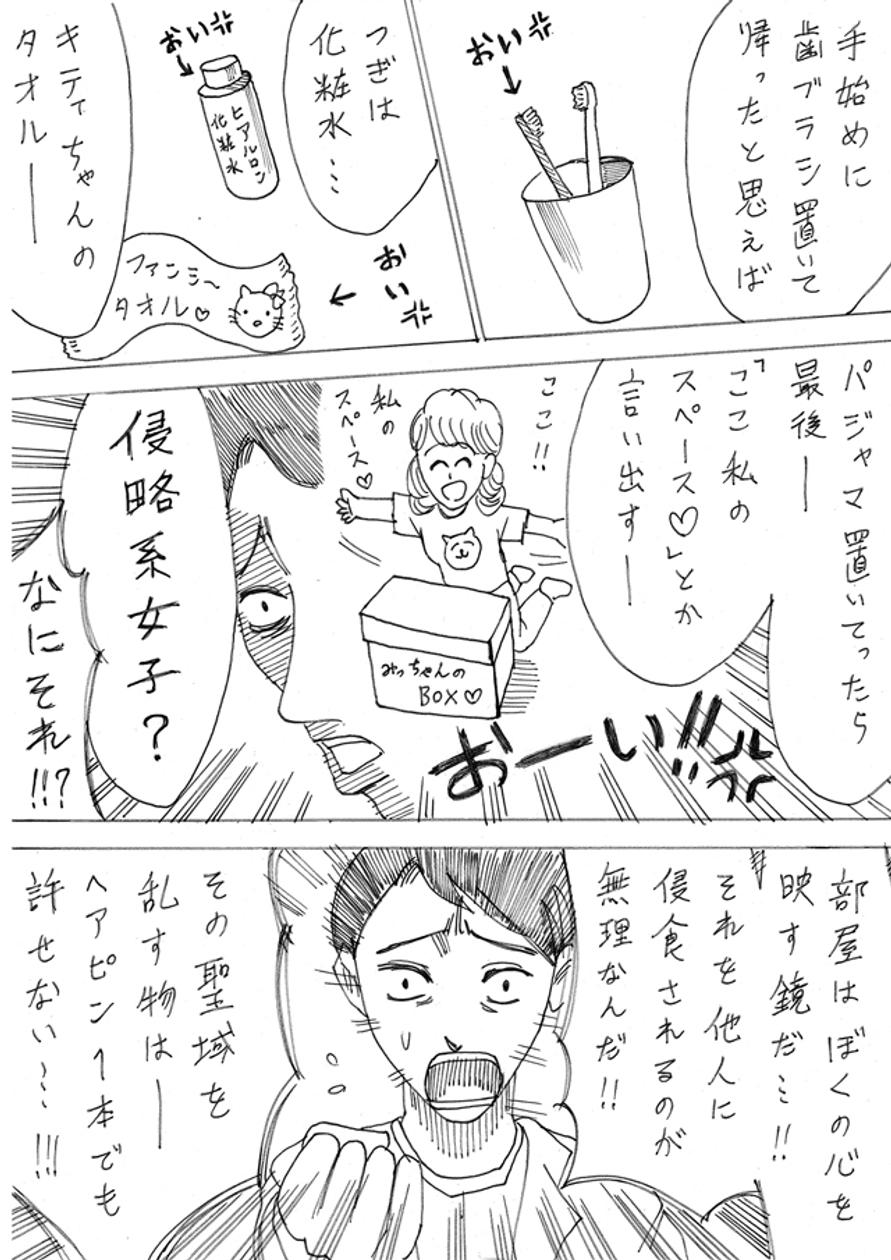 手始めに
歯ブラシ置いて
帰ったと思えば
おい
つぎは
化粧水…
おい
ヒアルロン
化粧水
キティちゃんの
タオルー
おい
ファンシ～
タオル♡
パジャマ置いてったら
最後ー
「ここ私の
スペース♡」とか
言い出すー
ここ!!
私の
スペース♡
みっちゃんの
BOX♡
おーい!!
侵略系女子?
なにそれ!!?
部屋はぼくの心を
映す鏡だ…!!
それを他人に
侵食されるのが
無理なんだ!!
その聖域を
乱す物はー
ヘアピン1本でも
許せない…!!!